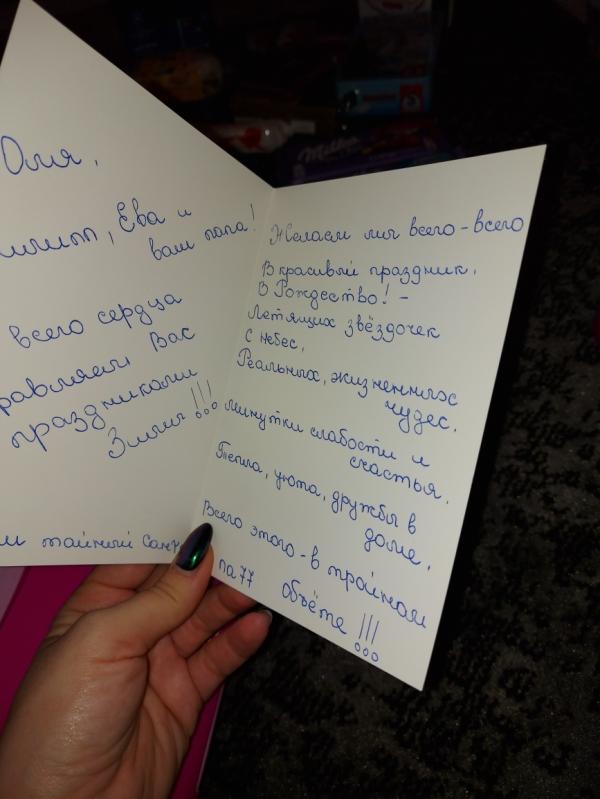 Оля,
Ева и
ваш папа!
всего сердца
Вас
праздниками
Зимы!!!
тайный Сан
Желаем мы всего-всего
В красивый праздник,
В Рождество! -
Летящих звёздочек
с небес,
Реальных, жизненных
чудес.
минутки слабости и
счастья.
Тепла, уюта, дружбы в
доме,
Всего этого - в тройном
объёме!!!
na77
Milka